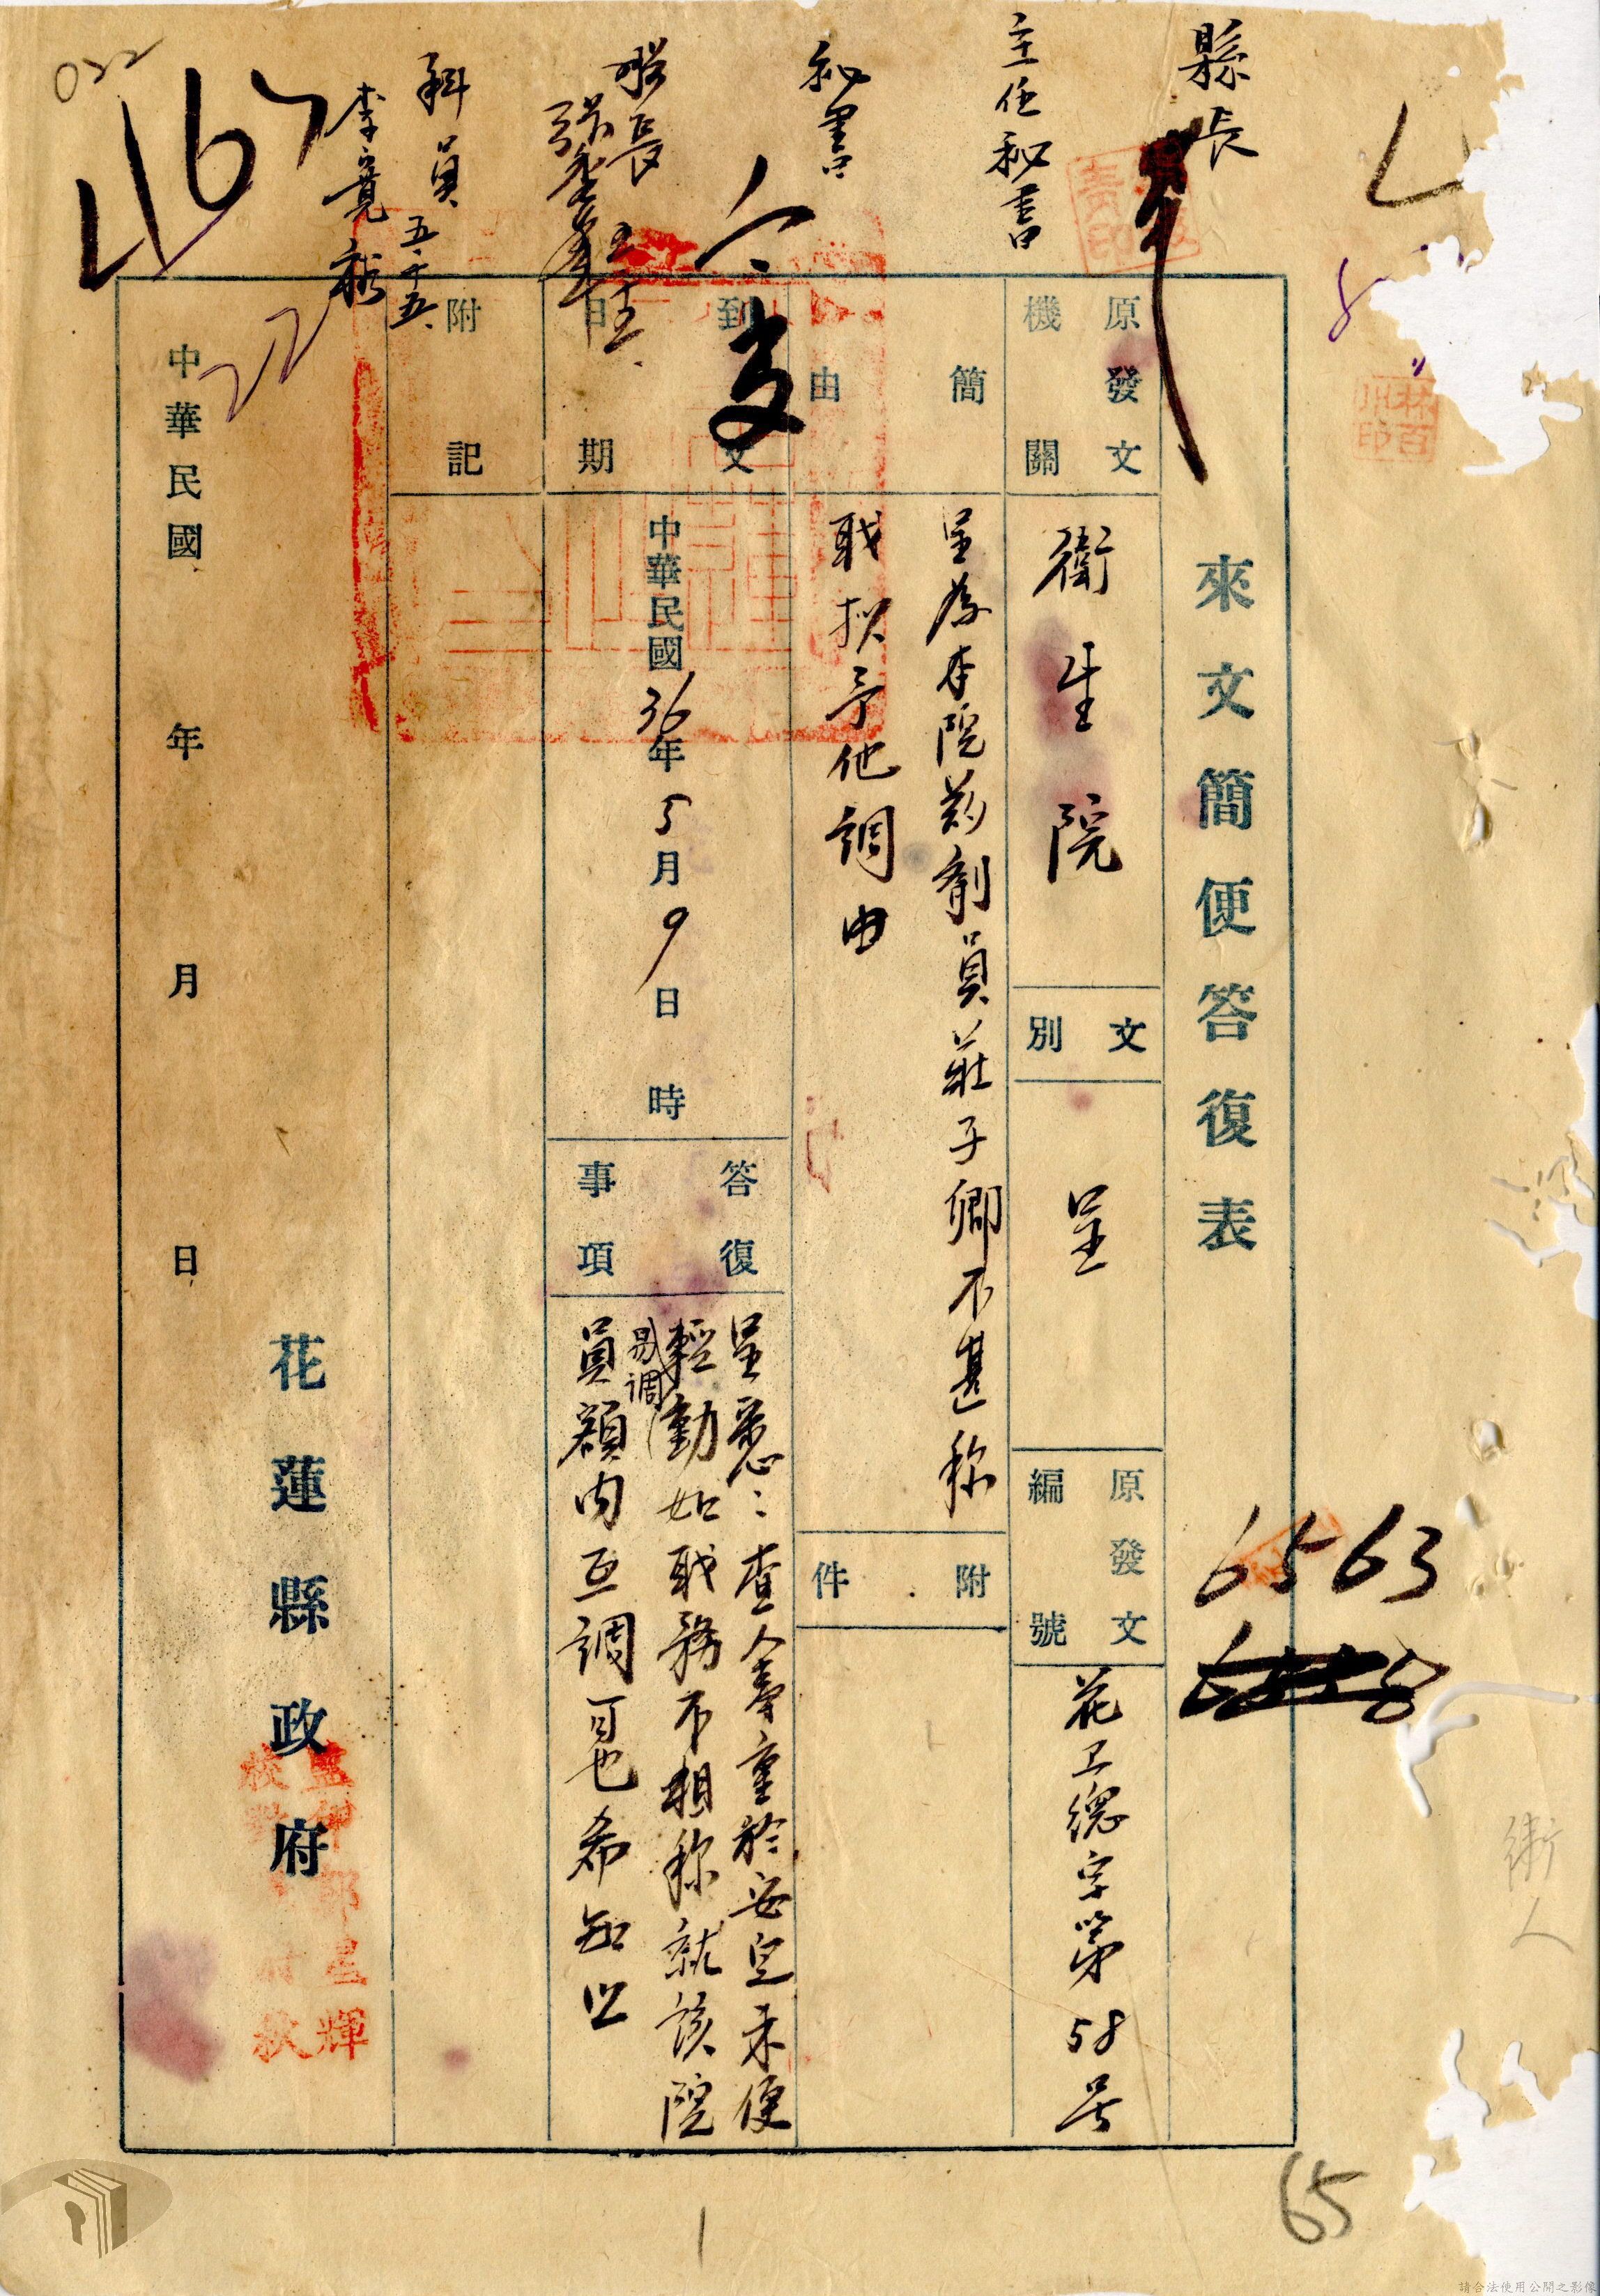 縣長
主任秘書
秘書
科員
五、十五、
來文簡便答復表
6563
原發文
機關
衛生院
文別
呈
原發文
編號
花卫總字第58号
簡由
呈為本院药劑員莊子卿不甚称
职拟予他調由
附件
到文
日期
中華民國36年5月9日時
答復
事項
呈悉:查人事重於安定未便
輕易調動如职務不相称就該院
員額內互調可也希知照
附記
花蓮縣政府
中華民國 年 月 日
65
022
22
衛人
請合法使用公開之影像